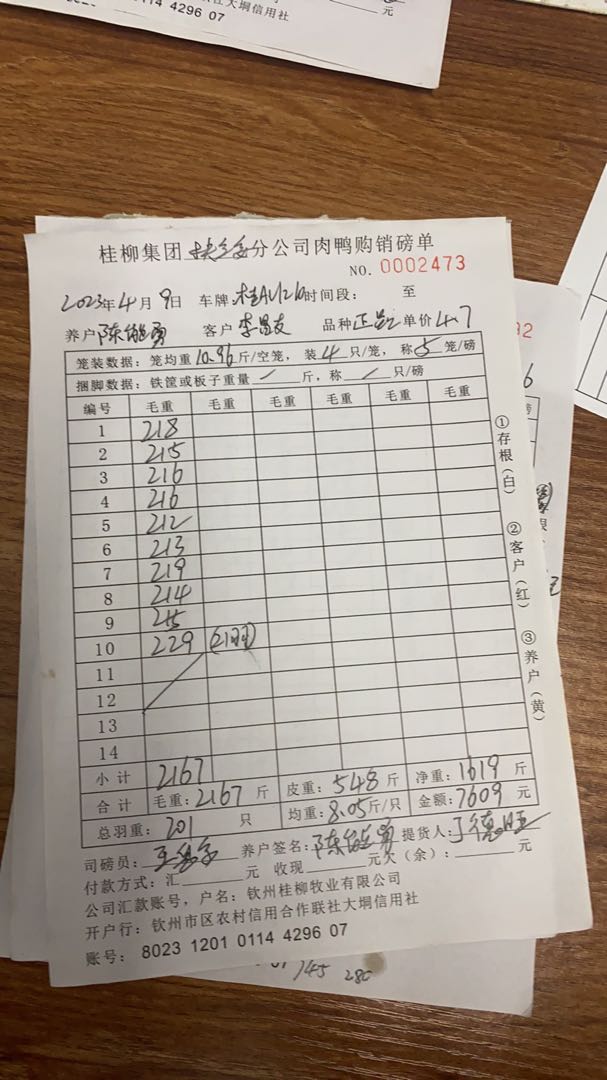 0114 4296 07
社大垌信用社
元
桂柳集团 分公司肉鸭购销磅单
NO. 0002473
2023年4月9日 车牌: 时间段: 至
养户 陈 勇 客户 李昌友 品种 正 单价 4.7
笼装数据: 笼均重 10.96 斤/空笼, 装 4 只/笼, 称 5 笼/磅
捆脚数据: 铁筐或板子重量 / 斤, 称 / 只/磅
编号 毛重 毛重 毛重 毛重 毛重 毛重
1 218
2 215
3 216
4 216
5 212
6 213
7 219
8 214
9 215
10 229 (21羽)
11
12
13
14
小计 2167
合计 毛重: 2167 斤 皮重: 548 斤 净重: 1619 斤
总羽重: 201 只 均重: 8.05 斤/只 金额: 7609 元
司磅员: 养户签名: 陈 勇 提货人: 丁德旺
付款方式: 汇 元 收现 元欠(余): 元
公司汇款账号, 户名: 钦州桂柳牧业有限公司
开户行: 钦州市区农村信用合作联社大垌信用社
账号: 8023 1201 0114 4296 07
①存根(白)
②客户(红)
③养户(黄)
92
6
145 280